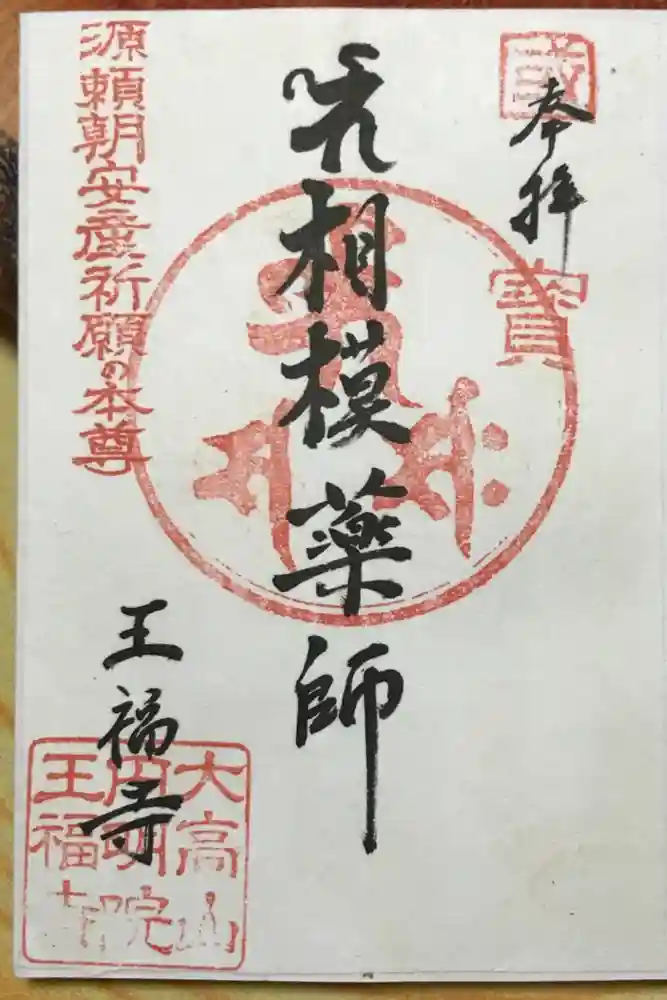 國寶
奉拜
相模藥師
源頼朝安産祈願の本尊
王福寺
大高山
円明院
王福寺